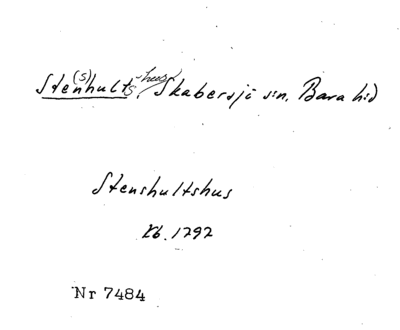 Sten(s)hults-hus, Skabersjö sn. Bara hd
Stenshultshus
Kb. 1292
Nr 7484